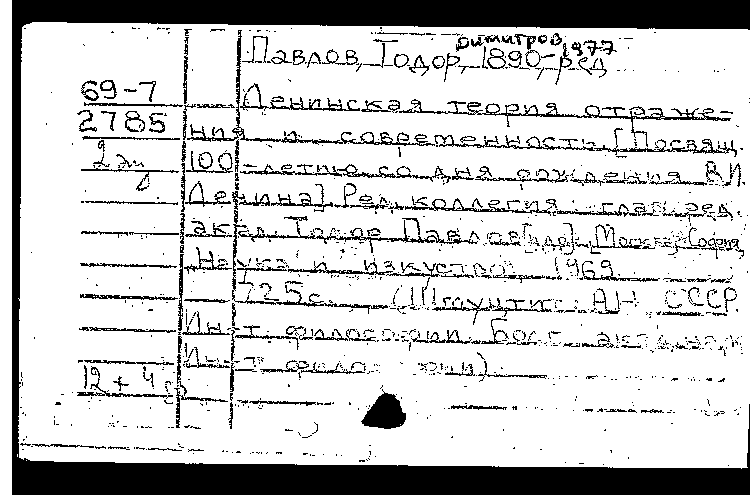 Димитров, 1977
Павлов, Тодор, 1890- ред
69-7
2785
2 эк
Ленинская теория отраже-
ния и современность. [Посвящ.
100-летию со дня рождения В.И.
Ленина]. Ред. коллегия: глав. ред.
акад. Тодор Павлов [и др]. [Москва]-София,
"Наука и изкуство", 1969.
725 с. (Шмуцтит.: АН СССР.
Ин-т философии. Болг. акад. наук
Ин-т философии).
12 + 4